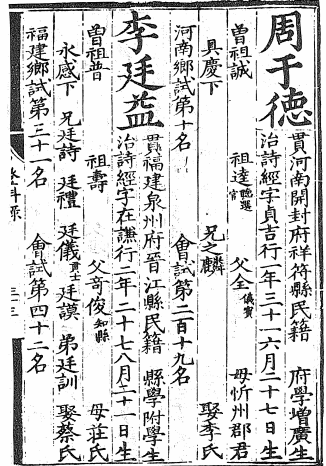 周于德
貫河南開封府祥符縣民籍 府學增廣生
治詩經字貞吉行一年三十一六月二十七日生
曾祖誠 祖逵 聽選官 父全 儀賓 母忻州郡君
具慶下 兄之麟 娶李氏
河南鄉試第十名 會試第二百十九名
李廷益
貫福建泉州府晉江縣民籍 縣學附學生
治詩經字在謙行二年二十七八月二十一日生
曾祖普 祖壽 父奇俊 知縣 母莊氏
永感下 兄廷詩 廷禮 廷儀 貢士 廷謨 弟廷訓 娶蔡氏
福建鄉試第三十一名 會試第四十二名